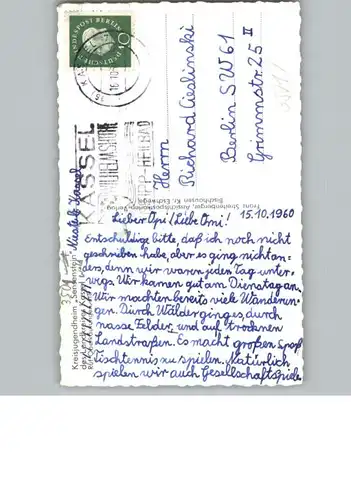 DEUTSCHE BUNDESPOST BERLIN
10
KASSEL
WILHELMSHÖHE
KNEIPP-HEILBAD
Herrn
Richard Cieslinski
Berlin SW 61
Grimmstr. 25 II
Franz Streitenberger, Ansichtspostkarten-Verlag
Bischhausen Kr. Eschwege
Kreisjugendheim „Seckenstein"
des Landkreises
Lieber Opi! Liebe Omi! 15.10.1960
Entschuldige bitte, daß ich noch nicht
geschrieben habe, aber es ging nicht an-
ders, denn wir waren jeden Tag unter-
wegs. Wir kamen gut am Dienstag an.
Wir machten bereits viele Wanderun-
gen. Durch Wälder ging es, durch
nasse Felder und auf trocknen
Landstraßen. Es macht großen Spaß
Tischtennis zu spielen. Natürlich
spielen wir auch Gesellschaftsspiele.